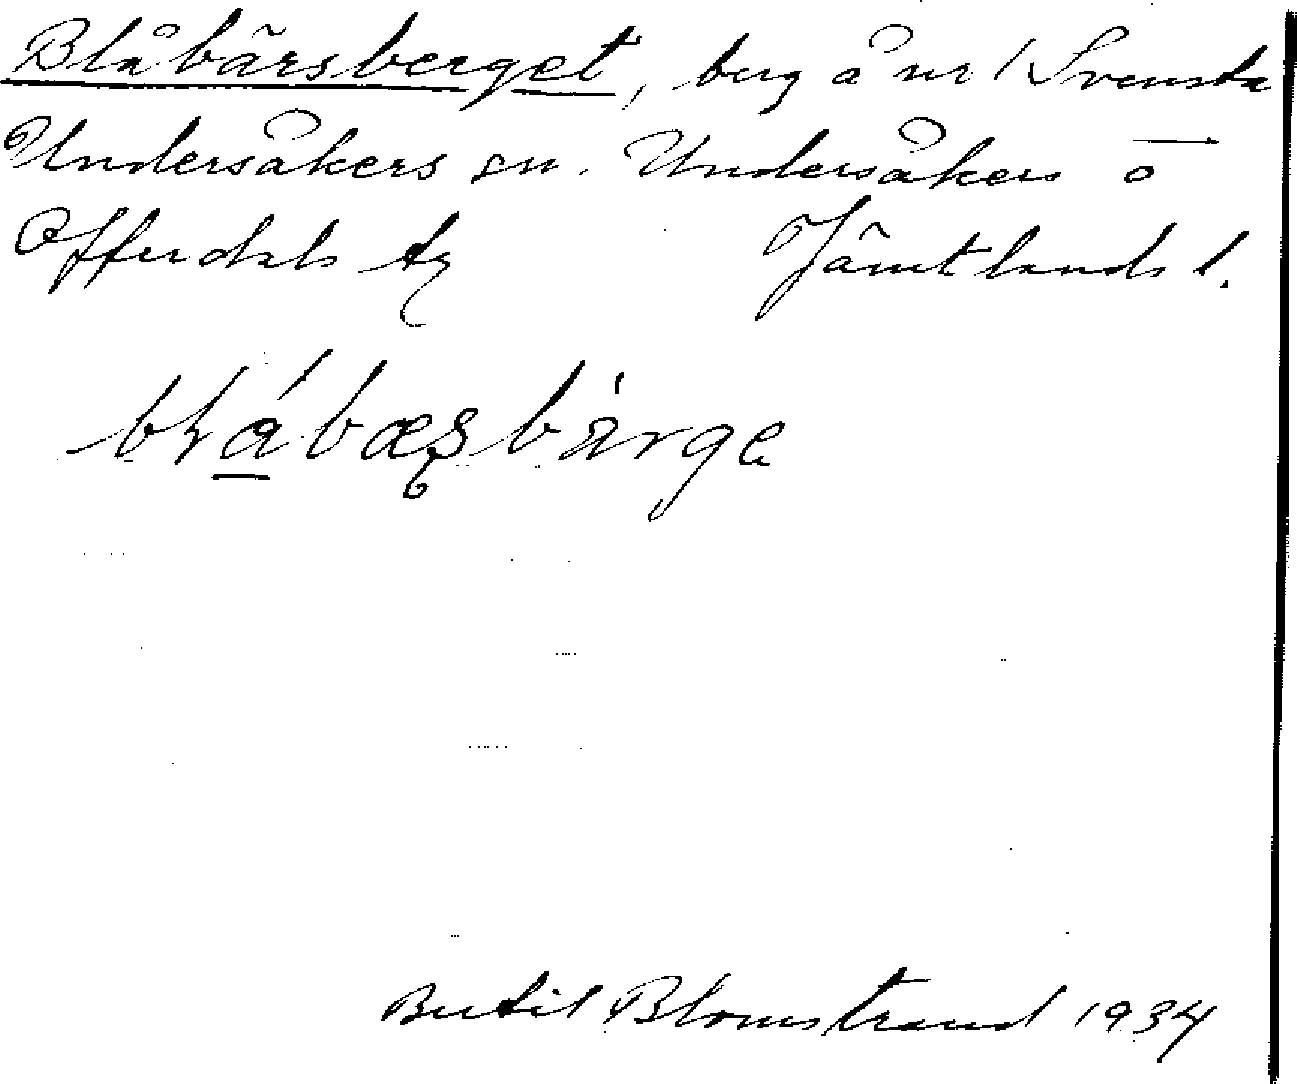 Blåbärsberget, berg å nr 1 Svensta
Undersåkers sn. Undersåkers o
Offerdals tg Jämtlands l.
Bertil Blomstrand 1934